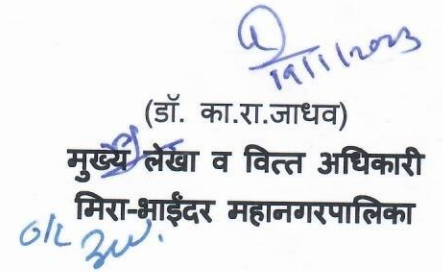 19/1/2023
(डॉ. का.रा.जाधव)
मुख्य लेखा व वित्त अधिकारी
मिरा-भाईंदर महानगरपालिका
O/C